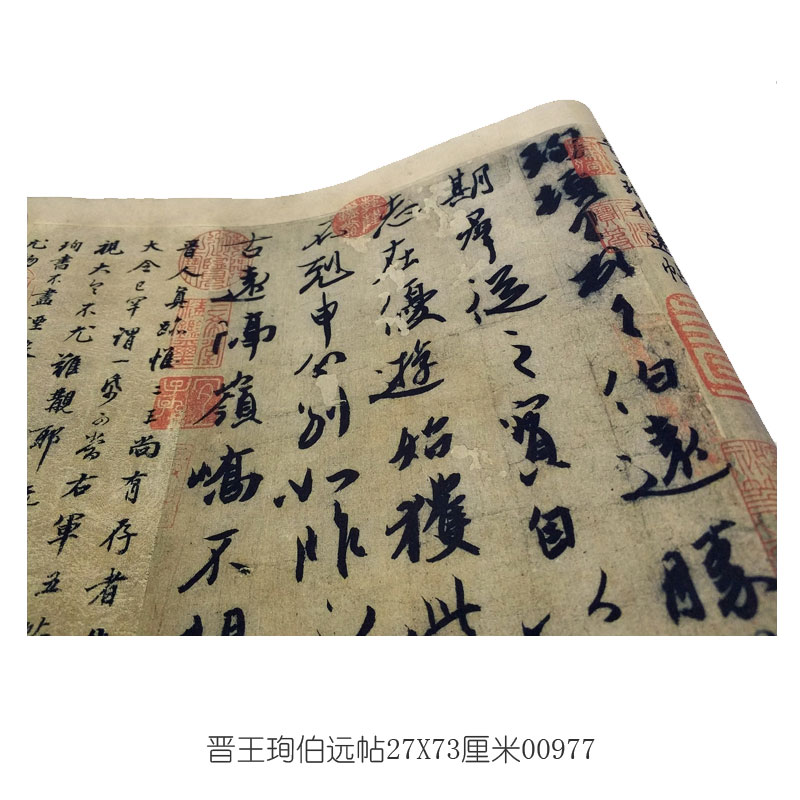 珣伯遠帖
珣頓首頓首伯遠勝
期羣從之寶自以
志在優遊始獲此
不剋申分別如昨
古遠隔嶺嶠不相
晉人真跡惟二王尚有存者
大令已罕謂一帋可當右軍五帖
視大令不尤難覯耶既
珣書不盡湮
尤物
晋王珣伯远帖27X73厘米00977